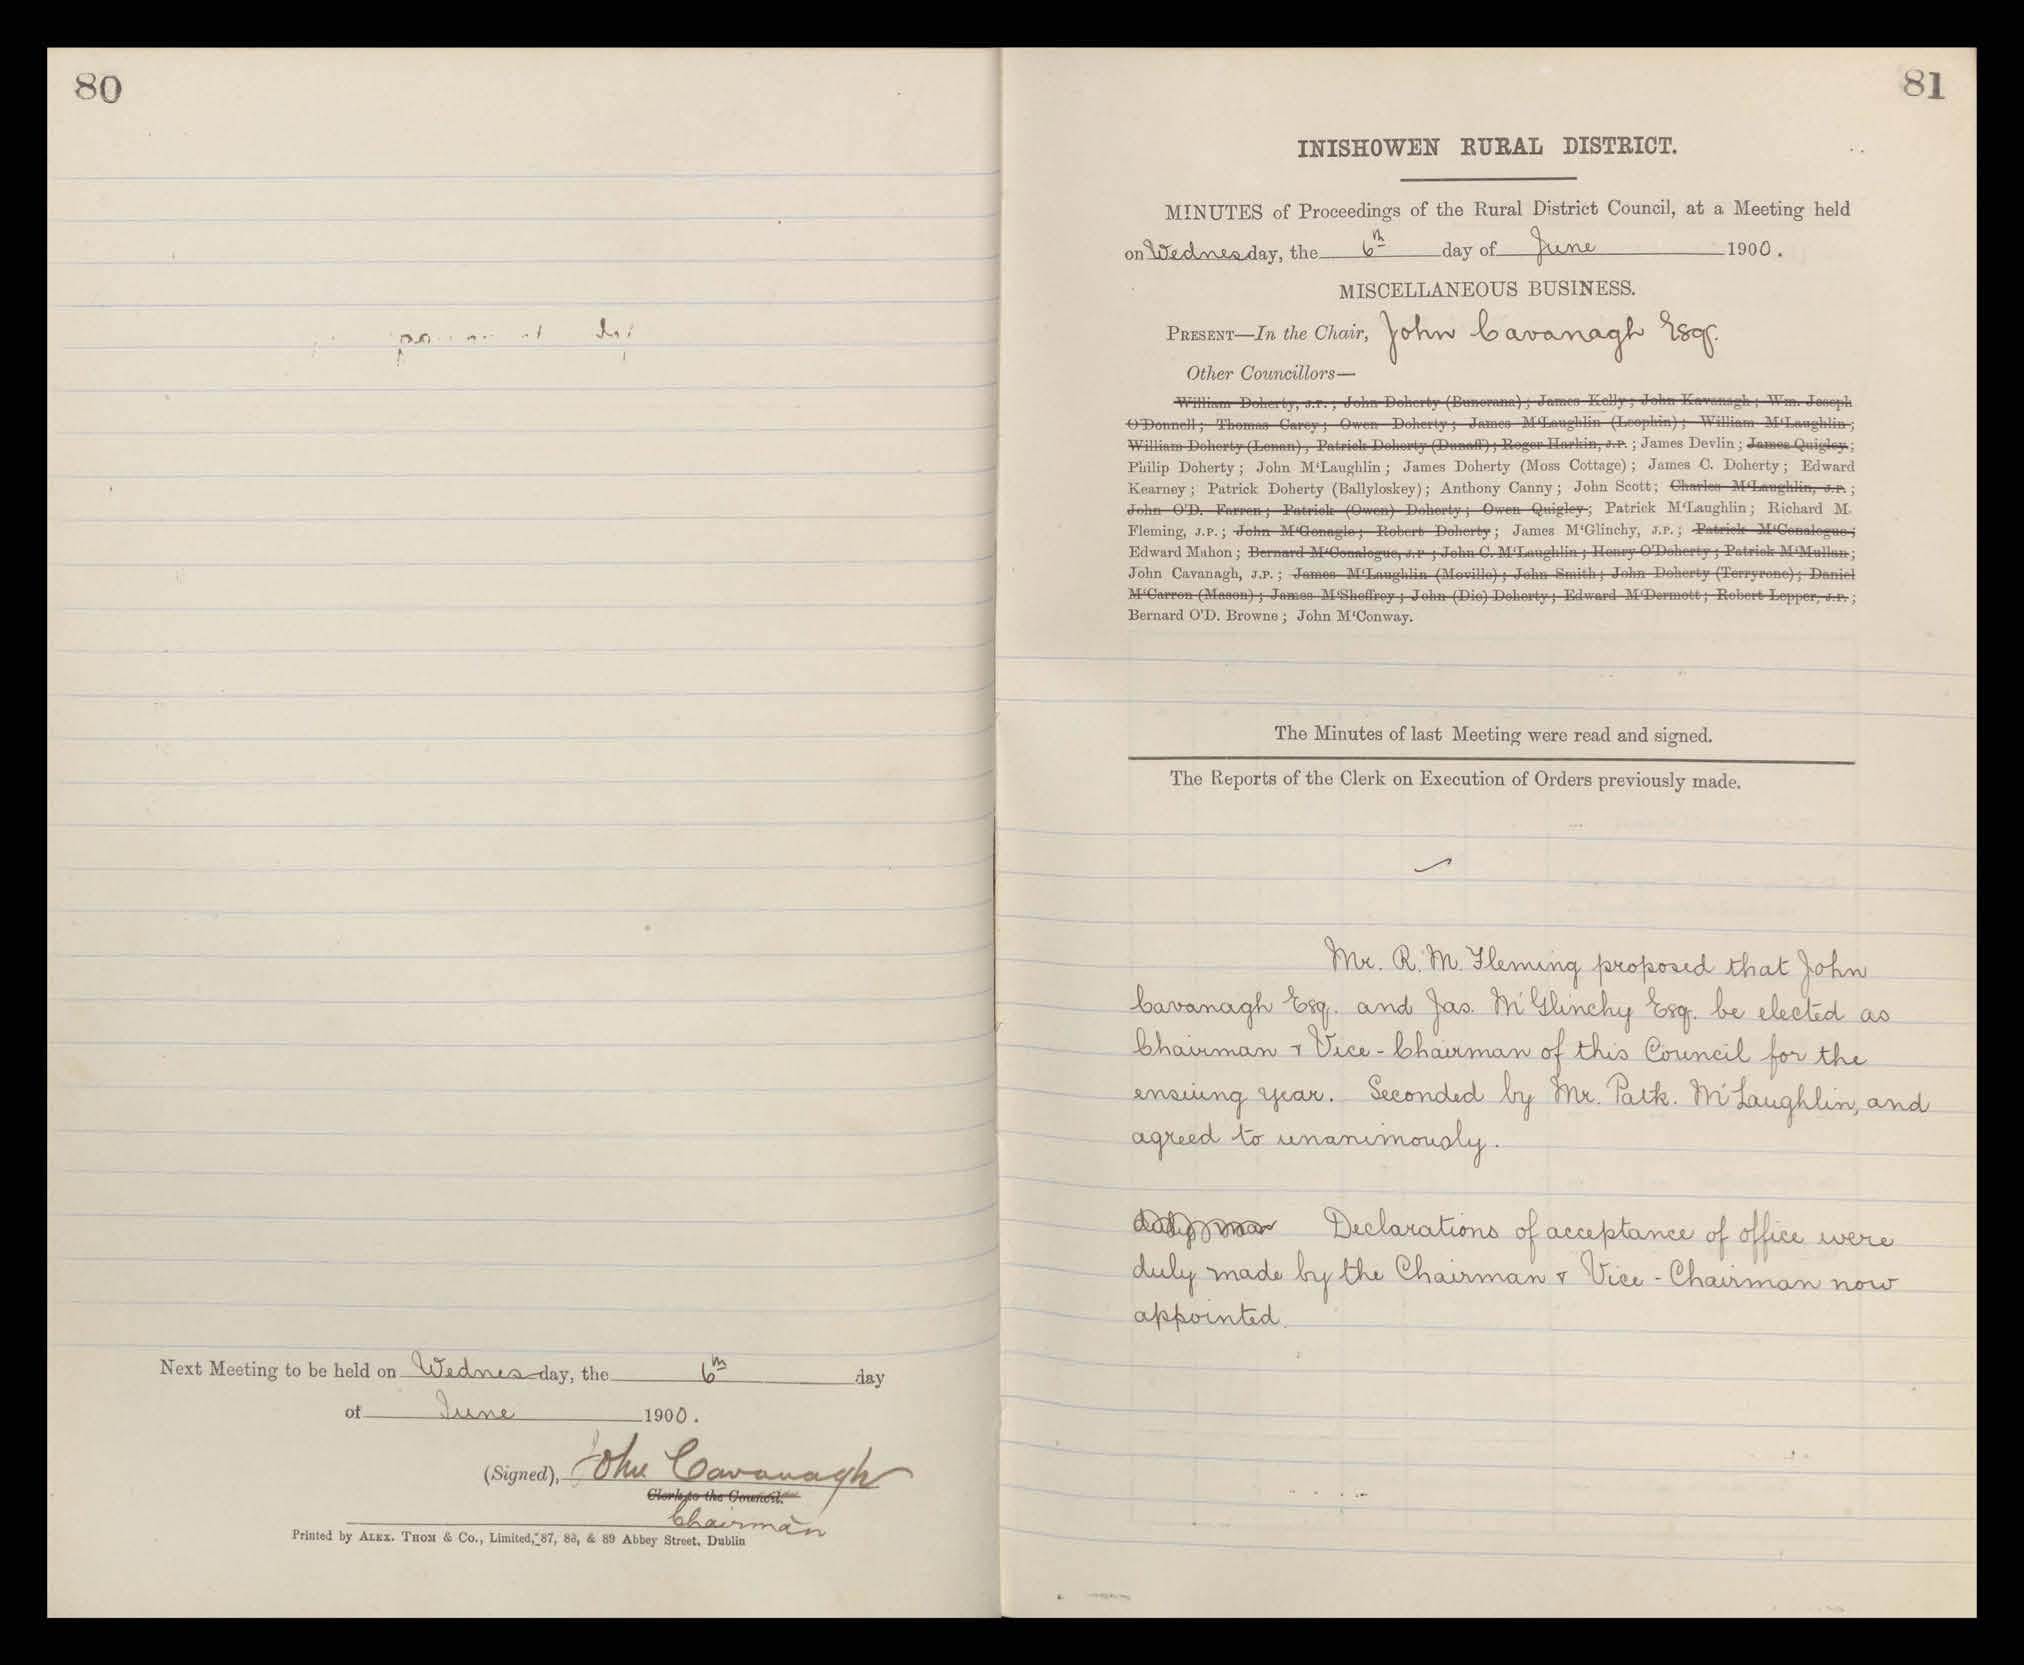 80
Next Meeting to be held on Wednesday, the 6th day
of June 1900.
(Signed), John Cavanagh
Clerk to the Council.
Chairman
Printed by ALEX. THOM & Co., Limited, 87, 88, & 89 Abbey Street, Dublin
81
INISHOWEN RURAL DISTRICT.
MINUTES of Proceedings of the Rural District Council, at a Meeting held
on Wednesday, the 6th day of June 1900.
MISCELLANEOUS BUSINESS.
PRESENT—In the Chair, John Cavanagh Esq.
Other Councillors—
William Doherty, J.P.; John Doherty (Buncrana); James Kelly; John Kavanagh; Wm. Joseph
O'Donnell; Thomas Carey; Owen Doherty; James M'Laughlin (Leophin); William M'Laughlin;
William Doherty (Lenan); Patrick Doherty (Dunaff); Roger Harkin, J.P.; James Devlin; James Quigley;
Philip Doherty; John M'Laughlin; James Doherty (Moss Cottage); James C. Doherty; Edward
Kearney; Patrick Doherty (Ballyloskey); Anthony Canny; John Scott; Charles M'Laughlin, J.P.;
John O'D. Farren; Patrick (Owen) Doherty; Owen Quigley; Patrick M'Laughlin; Richard M.
Fleming, J.P.; John M'Gonagle; Robert Doherty; James M'Glinchy, J.P.; Patrick M'Conalogue;
Edward Mahon; Bernard M'Conalogue, J.P.; John C. M'Laughlin; Henry O'Doherty; Patrick M'Mullan;
John Cavanagh, J.P.; James M'Laughlin (Moville); John Smith; John Doherty (Terryrone); Daniel
M'Carron (Mason); James M'Sheffrey; John (Dic) Doherty; Edward M'Dermott; Robert Lepper, J.P.;
Bernard O'D. Browne; John M'Conway.
The Minutes of last Meeting were read and signed.
The Reports of the Clerk on Execution of Orders previously made.
Mr. R. M. Fleming proposed that John
Cavanagh Esq. and Jas. M'Glinchy Esq. be elected as
Chairman & Vice-Chairman of this Council for the
ensuing year. Seconded by Mr. Patk. M'Laughlin, and
agreed to unanimously.
Declarations of acceptance of office were
duly made by the Chairman & Vice-Chairman now
appointed.